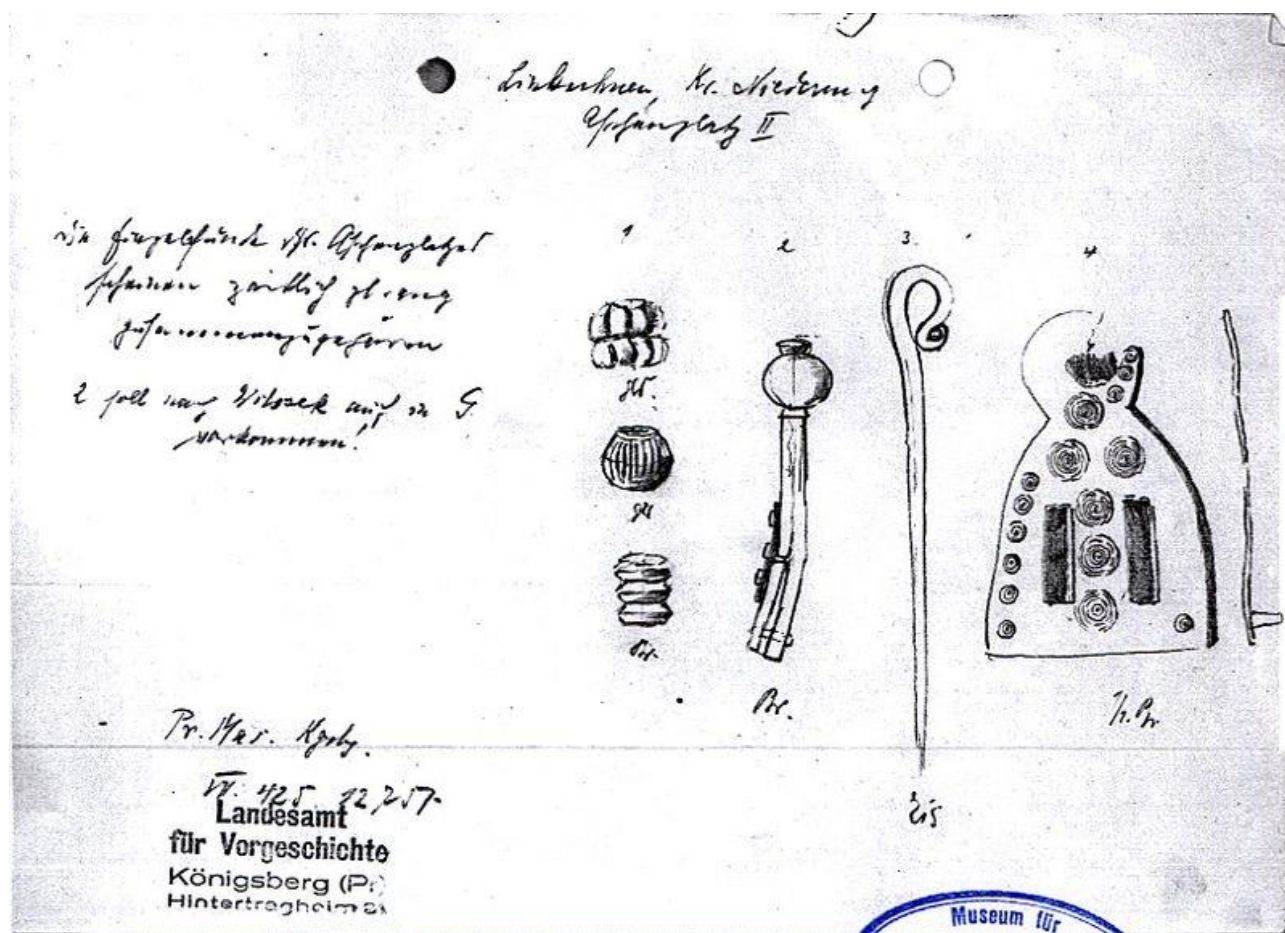 Linkuhnen, Kr. Niederung
Aschenplatz II
Die Einzelfunde des Aschenplatzes
scheinen zeitlich
zusammenzugehören
2 soll nach auch in G
vorkommen!
1 2 3. 4
Br.
Eis
Pr. Mus. Kgsbg.
VII. 425
Landesamt
für Vorgeschichte
Königsberg (Pr)
Hintertragheim
Museum für